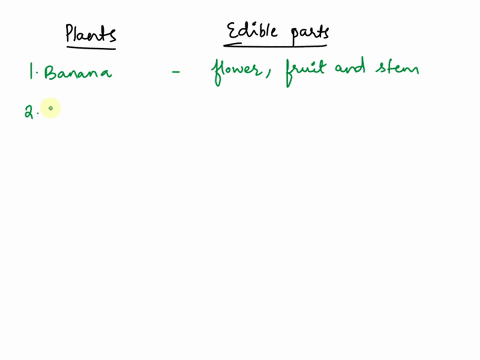 Plants Edible parts
1. Banana - flower, fruit and stem
2.